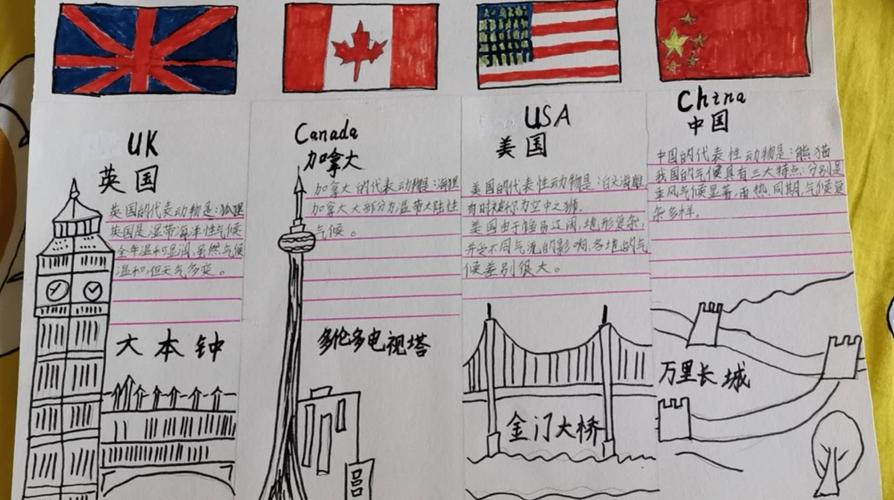 UK
英国
英国的代表动物是：狐狸
英国是温带海洋性气候
全年温和湿润，虽然气候
温和，但天气多变。
大本钟
Canada
加拿大
加拿大的代表动物是：海狸
加拿大大部分为温带大陆性
气候。
多伦多电视塔
USA
美国
美国的代表性动物是：白头海雕
有时被称为空中之狮。
美国由于幅员辽阔，地形复杂，
并受不同气流的影响，各地的气
候差别很大。
金门大桥
China
中国
中国的代表性动物是：熊猫
我国的气候具有三大特点，分别是
季风气候显著，雨热同期，气候复
杂多样。
万里长城